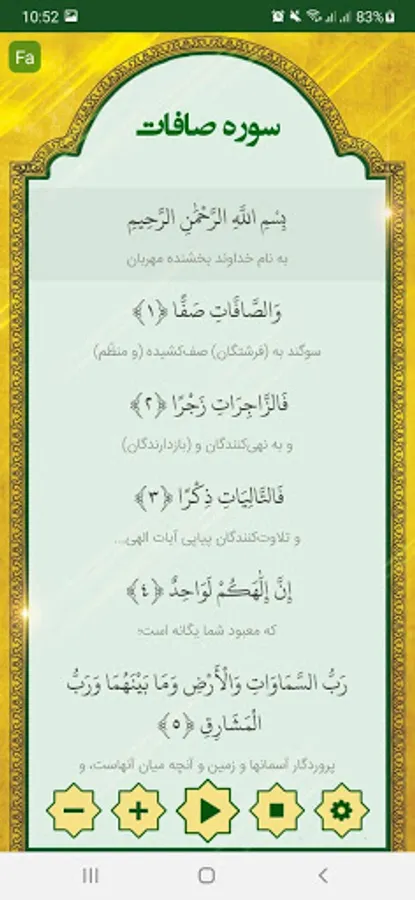 10:52
83%
Fa
سوره صافات
بِسْمِ اللَّهِ الرَّحْمَٰنِ الرَّحِيمِ
به نام خداوند بخشنده مهربان
وَالصَّافَّاتِ صَفًّا ﴿١﴾
سوگند به (فرشتگان) صف‌کشیده (و منظّم)
فَالزَّاجِرَاتِ زَجْرًا ﴿٢﴾
و به نهی‌کنندگان و (بازدارندگان)
فَالتَّالِيَاتِ ذِكْرًا ﴿٣﴾
و تلاوت‌کنندگان پیاپی آیات الهی...
إِنَّ إِلَٰهَكُمْ لَوَاحِدٌ ﴿٤﴾
که معبود شما یگانه است؛
رَبُّ السَّمَاوَاتِ وَالْأَرْضِ وَمَا بَيْنَهُمَا وَرَبُّ
الْمَشَارِقِ ﴿٥﴾
پروردگار آسمانها و زمین و آنچه میان آنهاست، و